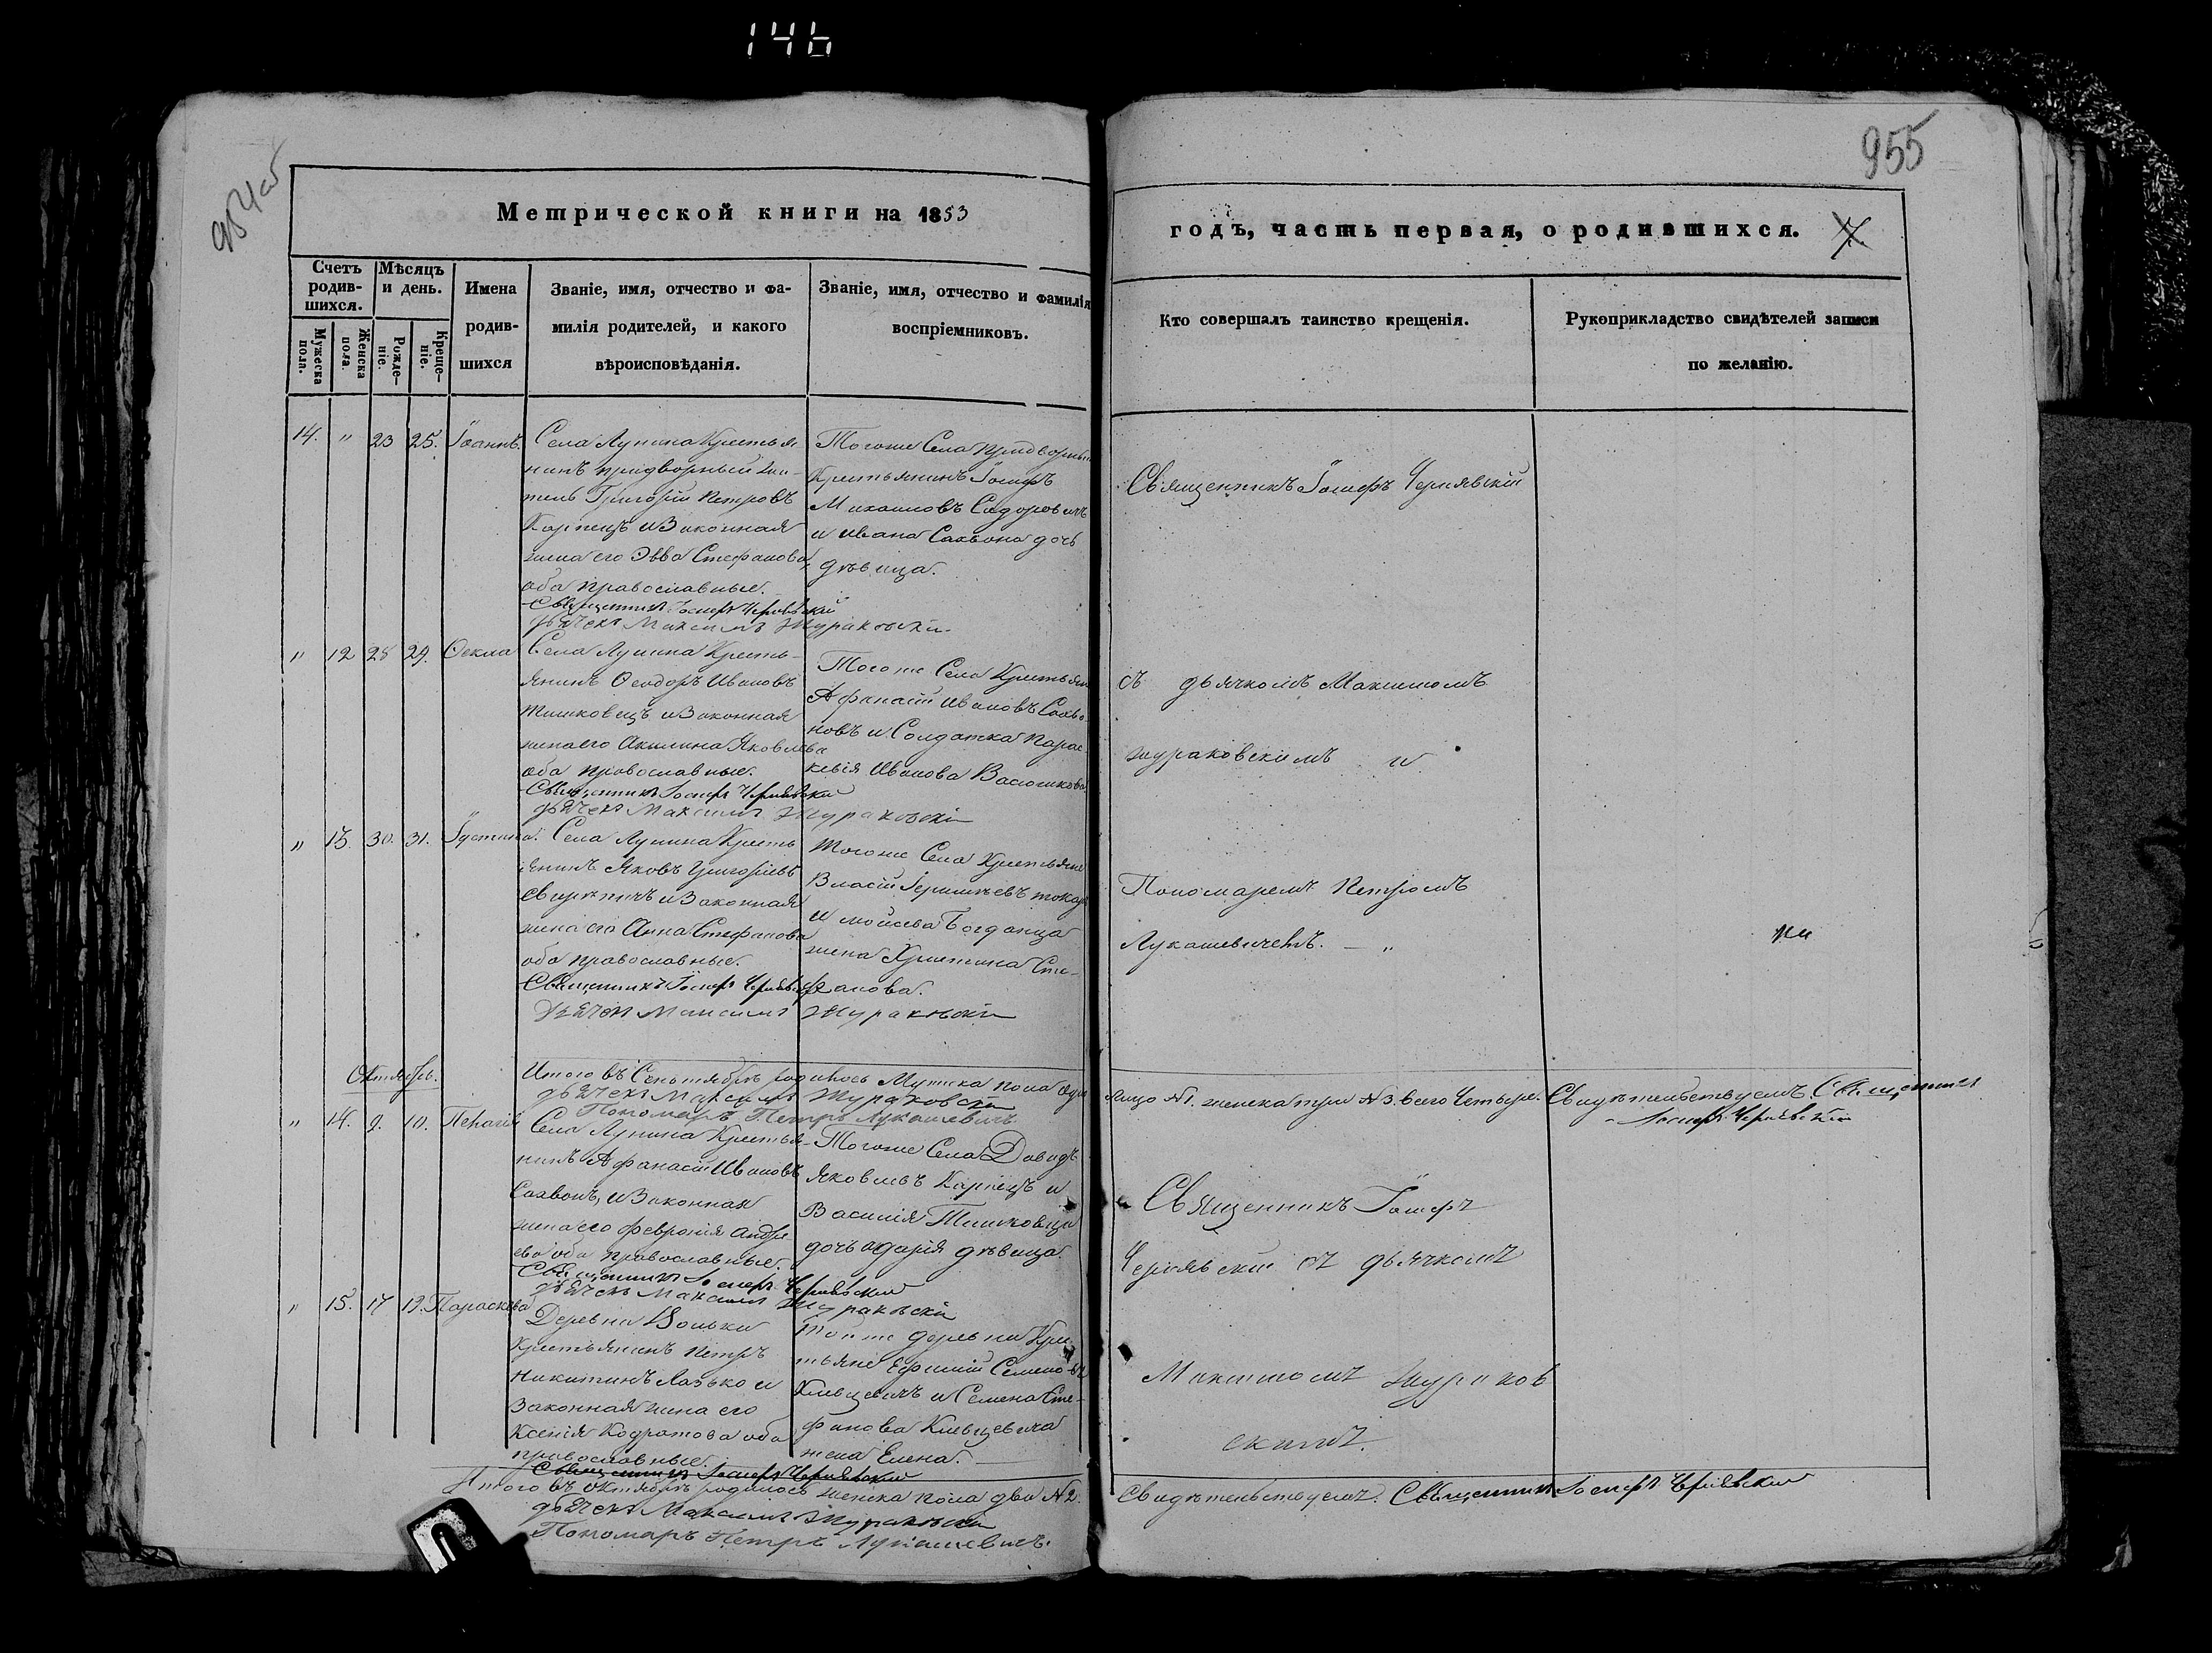 146
954 об
955
Метрической книги на 1853
годъ, часть первая, о родившихся. 7.
Счетъ родив-шихся.
Мужеска пола.
Женска пола.
Мѣсяцъ и день.
Рожде-ніе.
Креще-ніе.
Имена
родив-
шихся
Званіе, имя, отчество и фа-
милія родителей, и какого
вѣроисповѣданія.
Званіе, имя, отчество и фамилія
воспріемниковъ.
Кто совершалъ таинство крещенія.
Рукоприкладство свидѣтелей записи
по желанію.
14. " 23 25. Іоаннъ.
Села Лунина Крестья
нинъ придворный
Григорій Петровъ
Карпецъ и Законная
жена его Эвва Стефанова
оба православные.
Священникъ Іосифъ Чернявскій
дьячекъ Максимъ Жураковскій
Тогоже Села придворный
Крестьянинъ Іосифъ
Михаиловъ Сидоровичъ
и Ивана Сахвона дочь
дѣвица.
Священникъ Іосифъ Чернявскій
" 12 28 29. Ѳекла
Села Лунина Кресть-
янинъ Ѳеодоръ Ивановъ
Тишковецъ и Законная
жена его Акилина Яковлева
оба православные.
Священникъ Іосифъ Чернявскій
дьячекъ Максимъ Жураковскій
Тогоже Села Крестьян
Афанасій Ивановъ Сахво
новъ и Солдатка Парас
кевія Иванова
съ дьячкомъ Максимомъ
Жураковскимъ и
" 13. 30. 31. Іустина.
Села Лунина Кресть
янинъ Яковъ Григорьевъ
и Законная
жена его Анна Стефанова
оба православные.
Священникъ Іосифъ Чернявскій
дьячекъ Максимъ Жураковскій
Тогоже Села Крестьяне
Власій
и Мойсея Богданца
жена Христина Сте-
фанова.
Пономаремъ Петромъ
Лукашевичемъ. — "
Итого въ Сентябрѣ родилось Мужска пола
дьячекъ Максимъ Жураковскій
Пономаръ Петръ Лукашевичъ
№1. женска три №3. всего Четыре. Свидѣтельствуемъ Священникъ
Іосифъ Чернявскій
Октябрь.
" 14. 9. 10. Пелагія
Села Лунина Крестья-
нинъ Афанасій Ивановъ
Сахвонъ, и Законная
жена его Февронія Андре
ева оба православные.
Священникъ Іосифъ Чернявскій
дьячекъ Максимъ Жураковскій
Тогоже Села Давидъ
Яковлевъ Карпецъ и
Василія Тишковца
дочь Дарія дѣвица.
Священникъ Іосифъ
Чернявскій съ дьячкомъ
" 15. 17 19. Параскева
Деревни Вольки
Крестьянинъ Петръ
Никитинъ Лазько и
Законная жена его
Ксенія Кодратова оба
православные.
Священникъ Іосифъ Чернявскій
Тойже деревни Крес
тьяне Ефимій Семеновъ
Клевцевичъ и Семена Сте-
фанова Клевцевича
жена Елена.
Максимомъ Жураков
скимъ.
Итого въ Октябрѣ родилось женска пола два №2.
дьячекъ Максимъ Жураковскій
Пономаръ Петръ Лукашевичъ.
Свидѣтельствуемъ. Священникъ Іосифъ Чернявскій